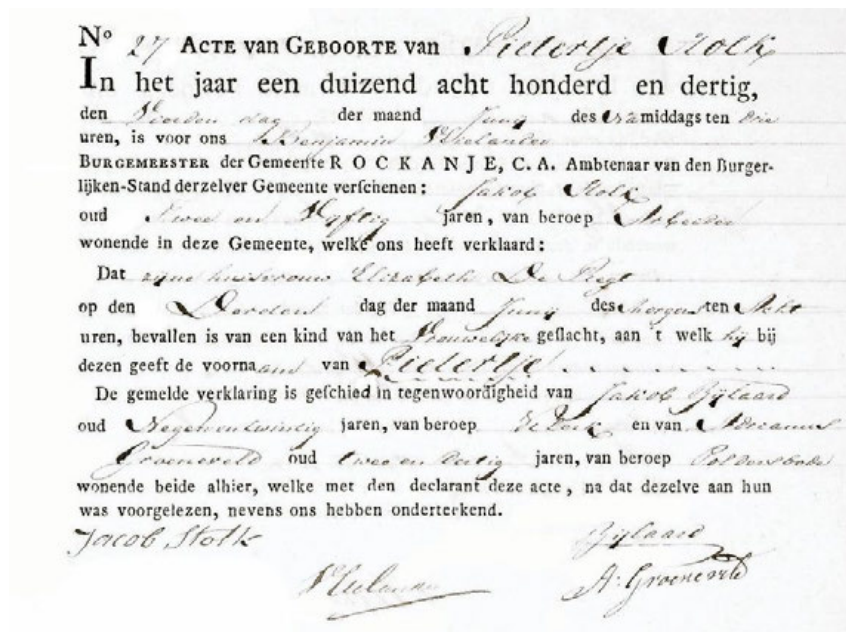 N° 27 ACTE van GEBOORTE van Pietertje Stolk
In het jaar een duizend acht honderd en dertig,
den Vierden dag der maand Juny des namiddags ten drie
uren, is voor ons Benjamin
BURGEMEESTER der Gemeente ROCKANJE, C. A. Ambtenaar van den Burger-
lijken-Stand derzelver Gemeente verschenen: Jakob Stolk
oud Twee en Vyftig jaren, van beroep Arbeider
wonende in deze Gemeente, welke ons heeft verklaard:
Dat zijne huisvrouw Elizabeth De Regt
op den Derden dag der maand Juny des morgens ten Acht
uren, bevallen is van een kind van het Vrouwelijke geslacht, aan 't welk hij bij
dezen geeft de voornaam van Pietertje
De gemelde verklaring is geschied in tegenwoordigheid van Jakob Bijlaard
oud Negenentwintig jaren, van beroep en van Adrianus
Groeneveld oud twee en dertig jaren, van beroep Poldersbode
wonende beide alhier, welke met den declarant deze acte, na dat dezelve aan hun
was voorgelezen, nevens ons hebben onderteekend.
Jacob Stolk Bijlaard
A. Groeneveld